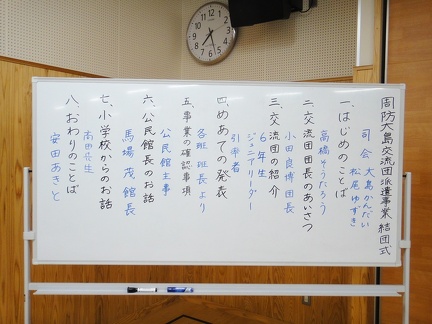 周防大島交流団派遣事業 結団式
司会 大島かんだい
松尾ゆずき
一、はじめのことば
高橋そうたろう
二、交流団団長のあいさつ
小田良博団長
三、交流団の紹介
6年生
ジュニアリーダー
引率者
四、めあての発表
各班 班長より
五、事業の確認事項
公民館主事
六、公民館長のお話
馬場 茂 館長
七、小学校からのお話
八、おわりのことば
安田あさと